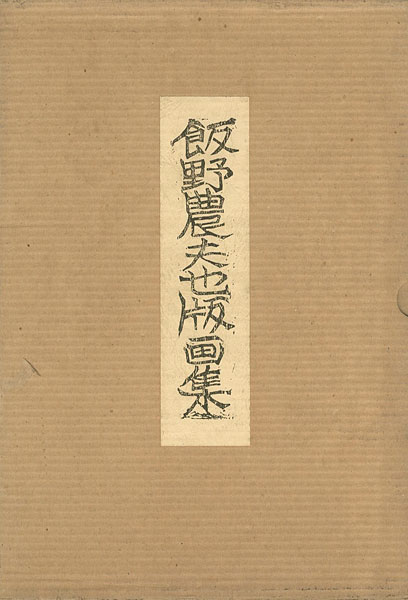 飯野農夫也版画集